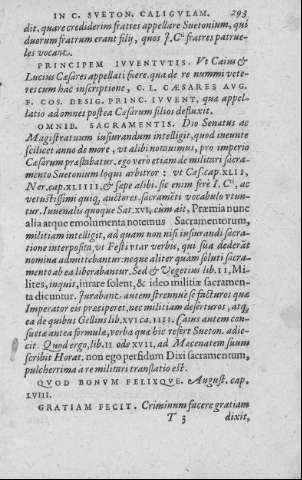 IN C. SVETON. CALIGVLAM. 293
dit. quare crediderim fratres appellare Suetonium, qui
duorum fratrum erant filij, quos I.Cti fratres patrue-
les vocant.
PRINCIPEM IVVENTVTIS. Vt Caius &
Lucius Cæsares appellati fuere. qua de re nummi vete-
res cum hac inscriptione, C. L. CÆSARES AVG.
F. COS. DESIG. PRINC. IVVENT. quæ appel-
latio ad omnes postea Cæsarum filios defluxit.
OMNIB. SACRAMENTIS. Dio Senatus ac
Magistratuum iusiurandum intelligit, quod ineunte
scilicet anno de more, vt alibi notauimus, pro imperio
Cæsarum præstabatur. ego verò etiam de militari sacra-
mento Suetonium loqui arbitror: vt Cæs. cap. XLII,
Ner. cap. XLIIII, & sæpe alibi. sic enim ferè I.Cti, ac
vetustissimi quiq, auctores. sacramẽti vocabulo vtun-
tur. Iuuenalis quoque Sat. XVI, cùm ait, Præmia nunc
alia atque emolumenta notemus Sacramentorum,
militiam intelligit, ad quam non nisi iusiurandi sacra-
tione interposita, vt Festi vtar verbis, qui sua dederãt
nomina admittebantur: neque aliter quàm soluti sacra-
mento ab ea liberabantur. Sed & Vegetius lib. II, Mi-
lites, inquit, iurare solent, & ideo militiæ sacramen-
ta dicuntur. Iurabant autem strenuè se facturos quæ
Imperator eis præciperet, nec militiam deserturos, atq,
ea de quibus Gellius lib. XVI ca. IIII. Caius autem con-
suetæ autea formulæ, verba quæ hîc refert Sueton. adie-
cit. Quod ergo, lib. II ode XVII, ad Mæcenatem suum
scribit Horat. non ego perfidum Dixi sacramentum,
pulcherrima à re militari translatio est.
QVOD BONVM FELIXQVE. August. cap.
LVIII.
GRATIAM FECIT. Criminum facere gratiam
T 3 dixit,